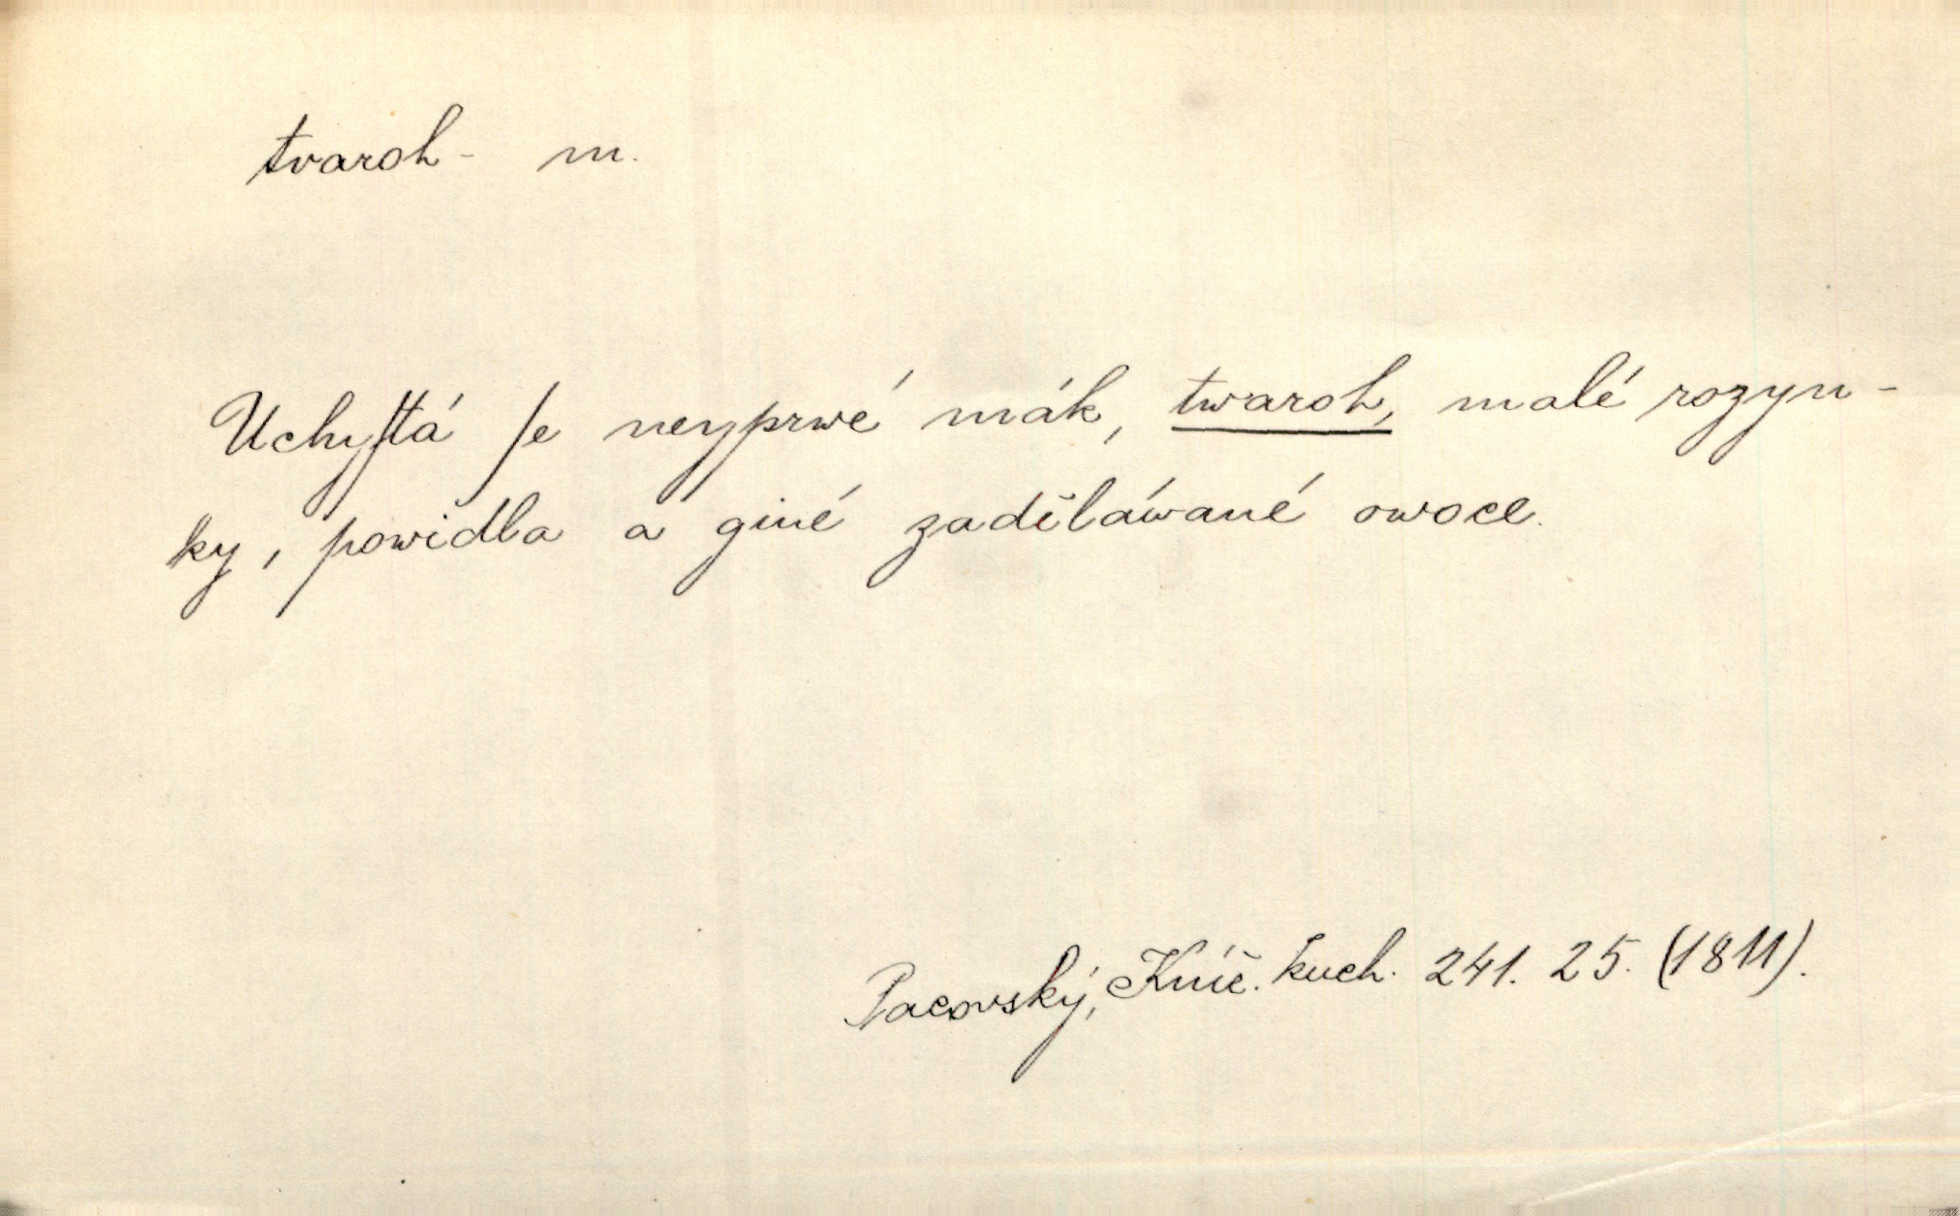 tvaroh - m.
Uchyſtá ſe neyprwé mák, twaroh, malé rozyn-
ky, powidla a giné zaděláwané owoce.
Pacovský, Kníž. kuch. 241. 25. (1811).